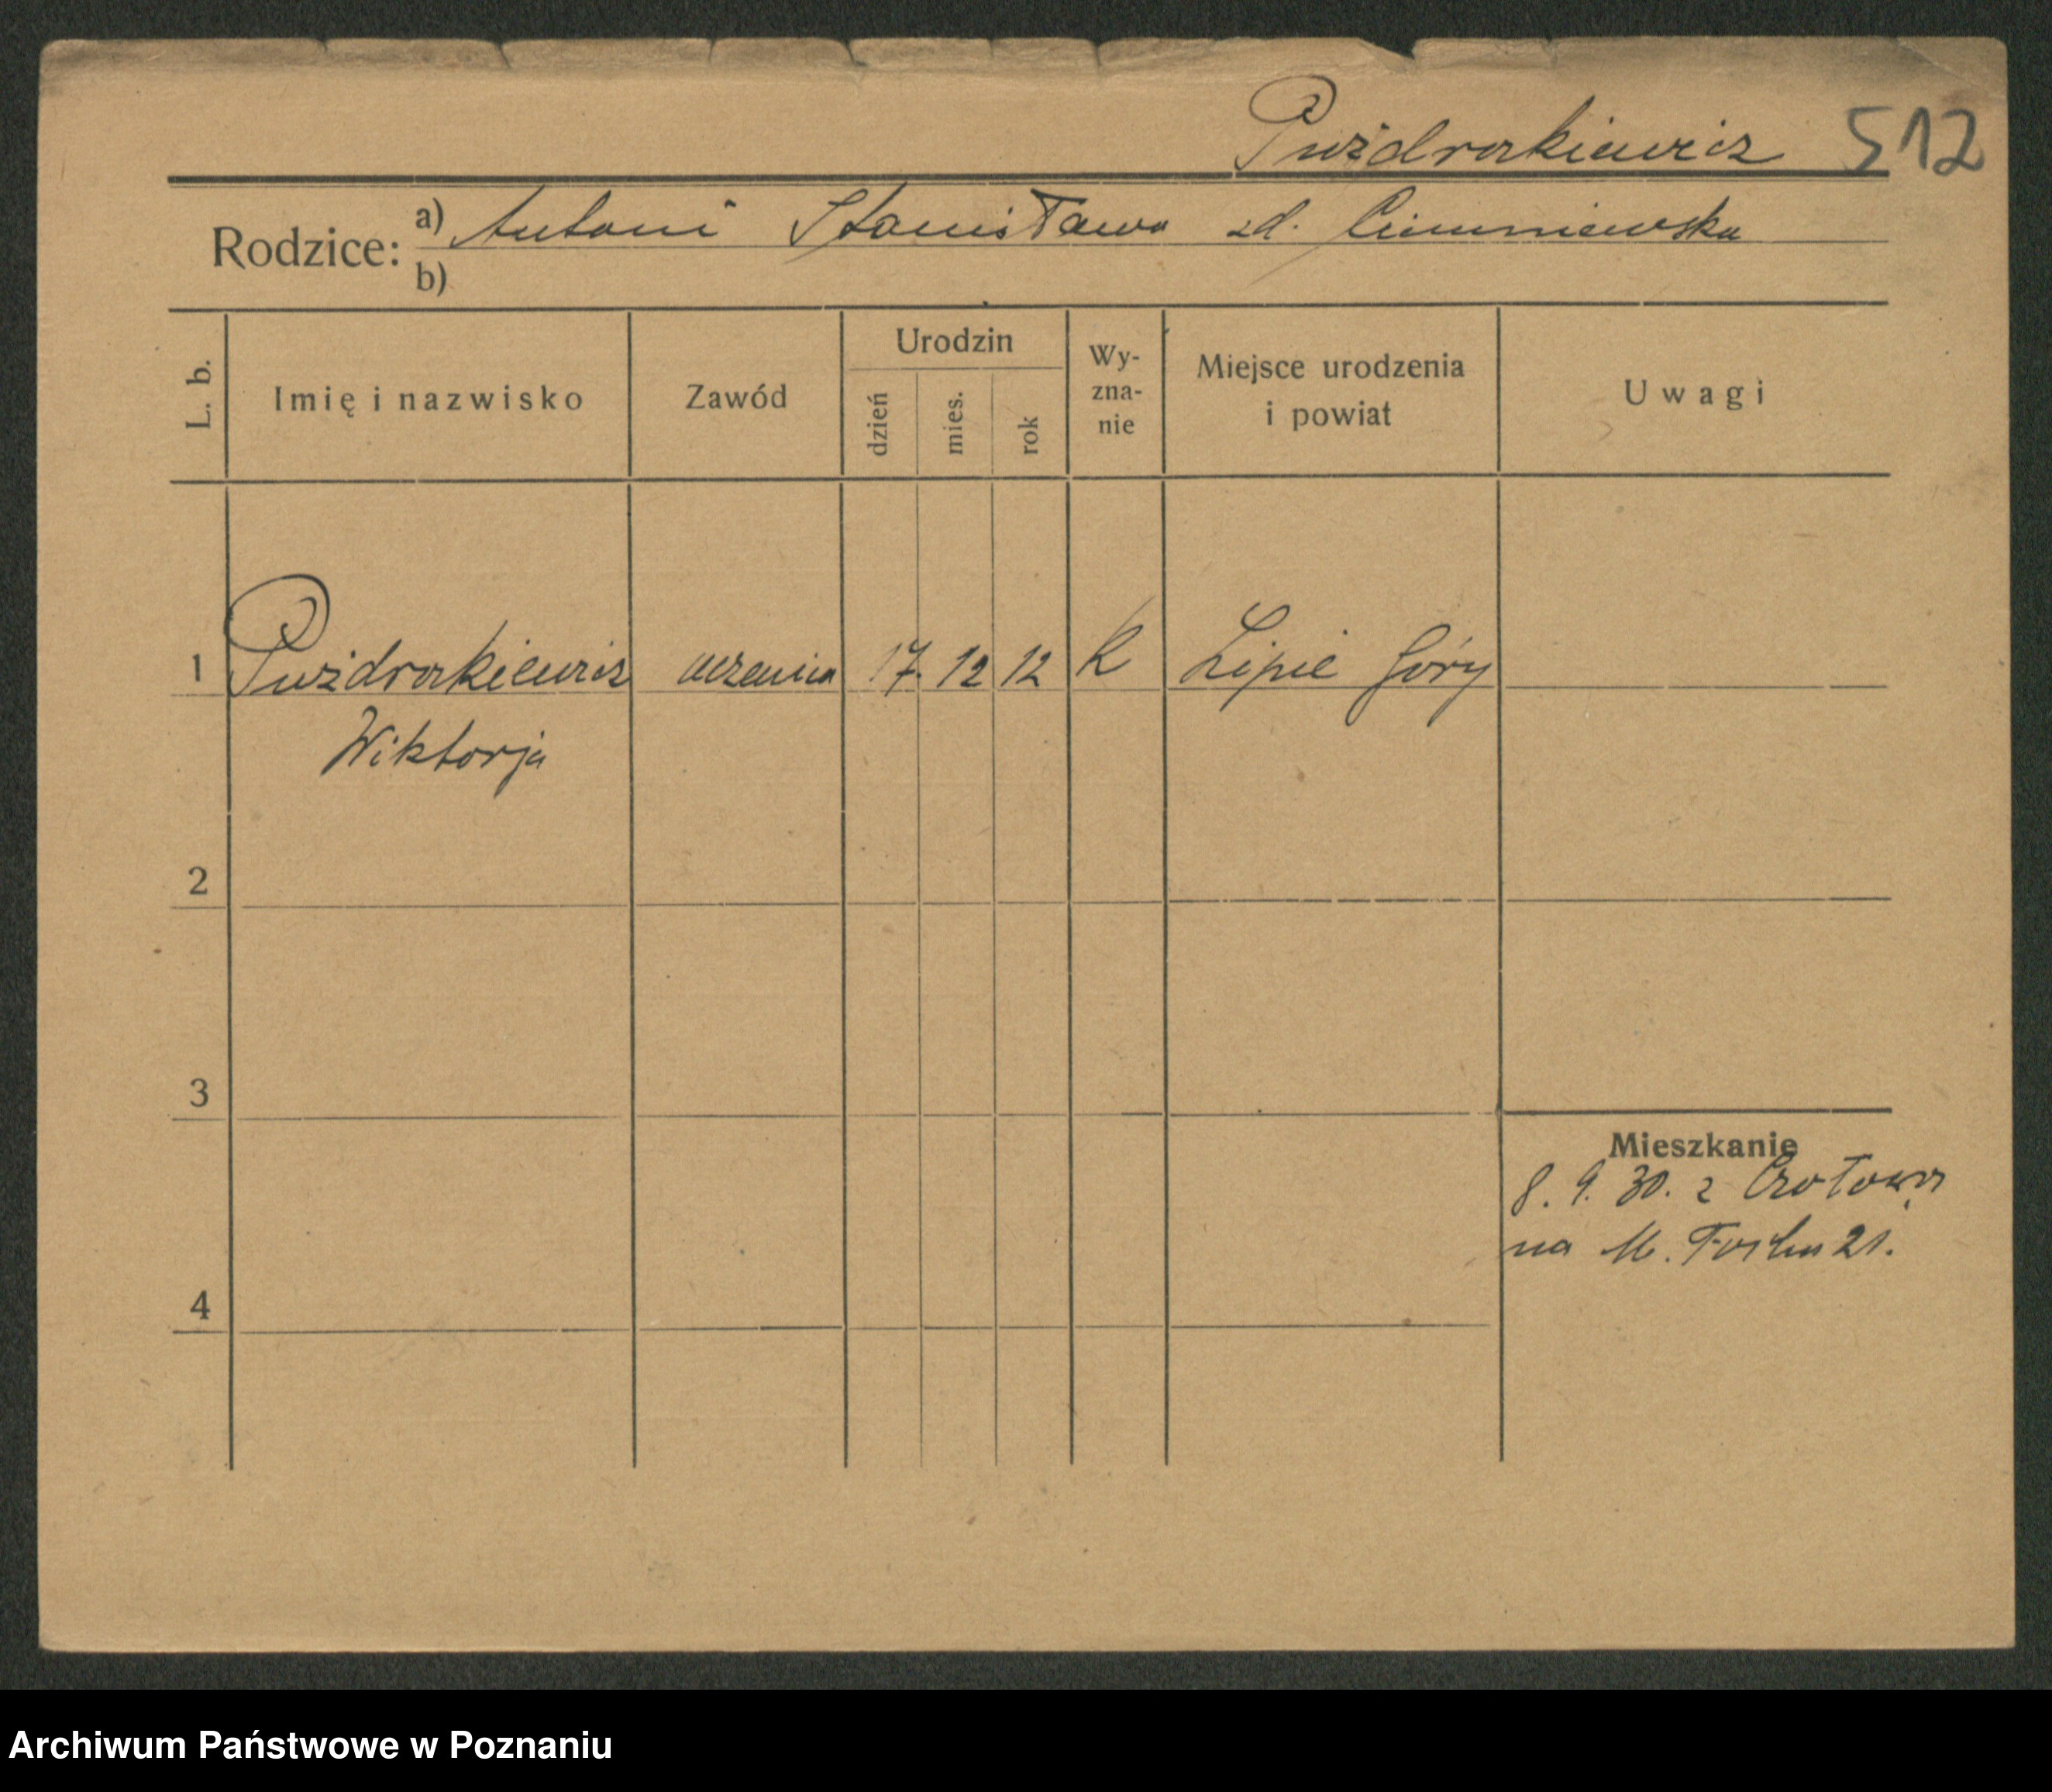 Puździorkiewicz 512
Rodzice: a) Antoni Stanisława zd. Ciemniewska
b)
L. b. Imię i nazwisko Zawód Urodzin dzień mies. rok Wy-zna-nie Miejsce urodzenia i powiat Uwagi
1 uczenica 17. 12 12 K Lipie Góry
Wiktorja
2
3
Mieszkanie
8. 9. 30. z
na M. Focha 21.
4
Archiwum Państwowe w Poznaniu